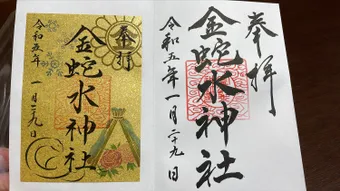 奉拝
金蛇水神社
令和五年一月二十九日
金蛇水神社
令和五年
一月二九日